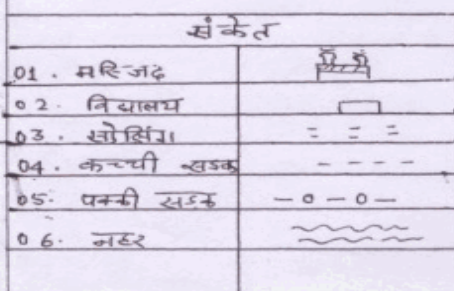 संकेत
01. मस्जिद
02. विद्यालय
03. सोलिंग
04. कच्ची सडक
05. पक्की सडक
06. नहर